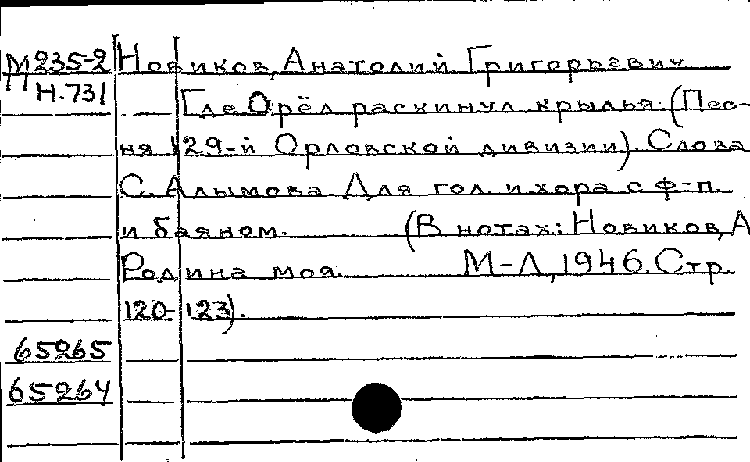 М235-2 Новиков, Анатолий Григорьевич
Н.731 Где Орёл раскинул крылья. (Пес-
ня 129-й Орловской дивизии). Слова
С. Алымова Для гол. и хора с ф-п.
и баяном. (В нотах: Новиков, А
Родина моя. М-Л, 1946. Стр.
120-123).
65265
65264